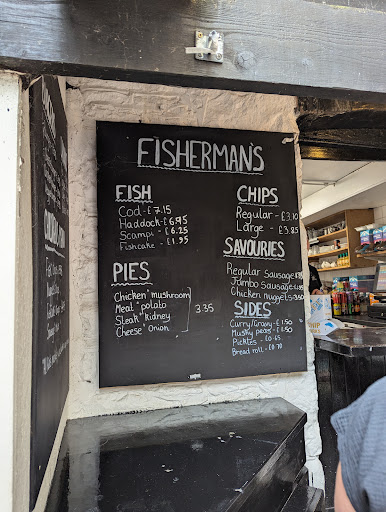 FISHERMAN'S
FISH
Cod - £7.15
Haddock - £6.95
Scampi - £6.25
Fishcake - £1.95
PIES
Chicken & mushroom
Meat & potato
Steak & Kidney
Cheese & Onion
3.35
CHIPS
Regular - £3.10
Large - £3.85
SAVOURIES
Regular Sausage
Jumbo Sausage
Chicken nuggets
SIDES
Curry/Gravy - £1.50
Mushy peas - £1.50
Pickles - £0.65
Bread roll - £0.70